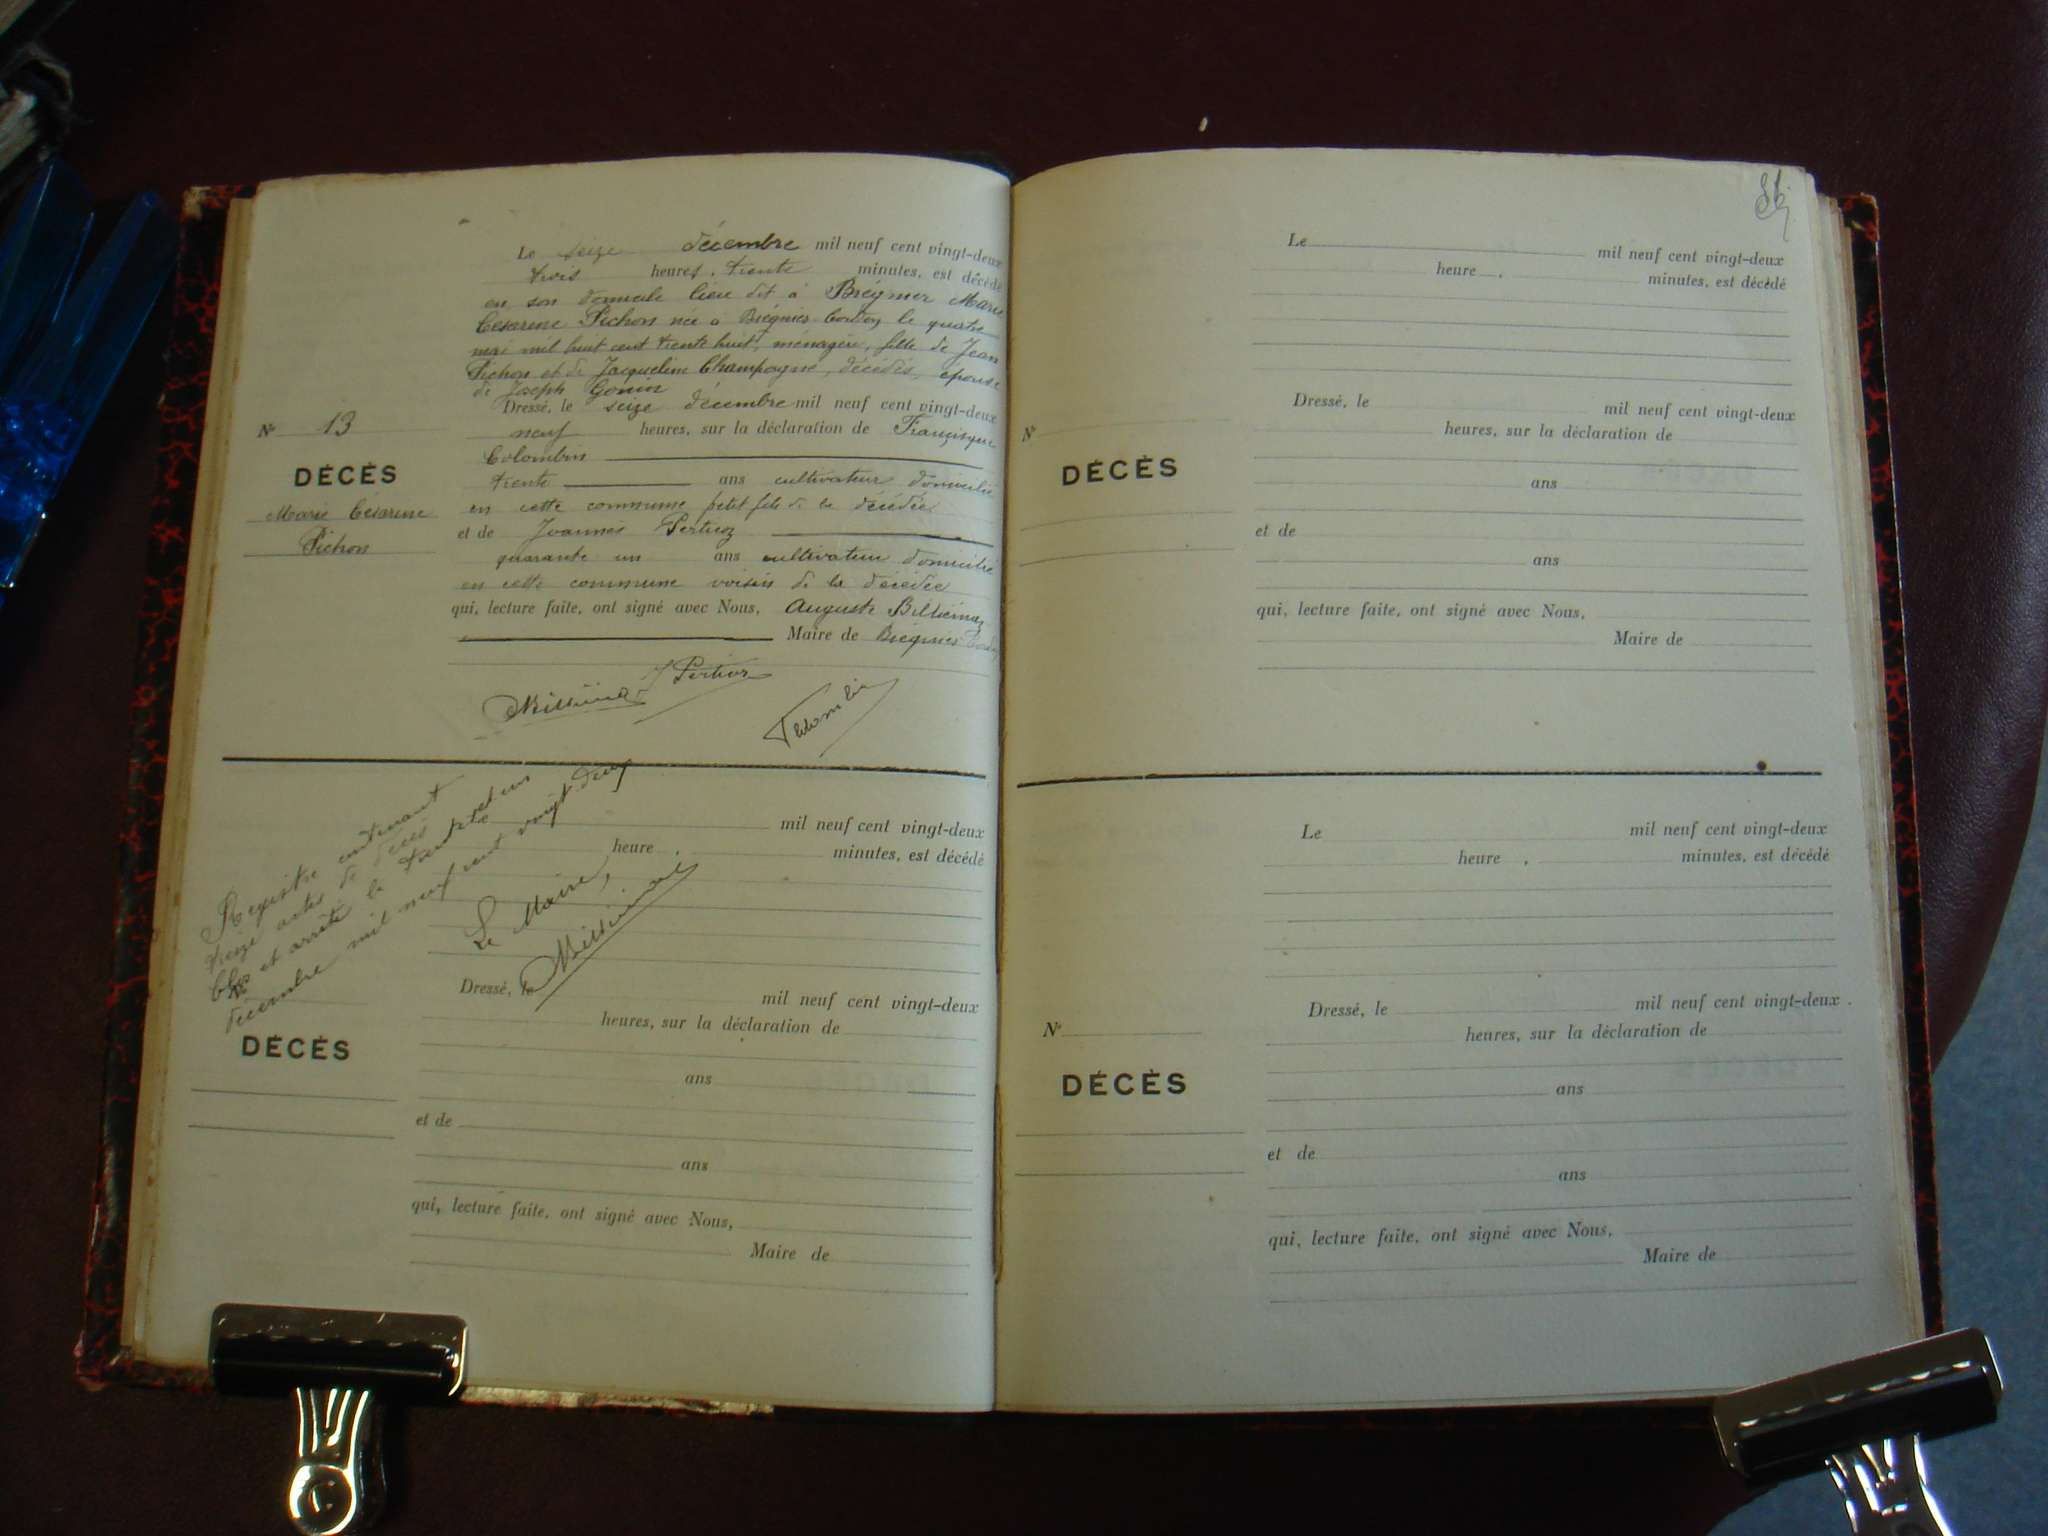 Le seize décembre mil neuf cent vingt-deux
trois heures, trente minutes, est décédé
en son domicile lieu dit à Brégnier Marie
Césarine Pichon née à Brégnier Cordon le quatre
mai mil huit cent trente huit, ménagère, fille de Jean
Pichon et de Jacqueline Champagne, décédés, épouse
de Joseph Gonin
Dressé, le seize décembre mil neuf cent vingt-deux
neuf heures, sur la déclaration de Francisque
Colombin
trente ans cultivateur domicilié
en cette commune petit fils de la décédée
et de Joannès
quarante un ans cultivateur domicilié
en cette commune voisin de la décédée
qui, lecture faite, ont signé avec Nous, Auguste
Maire de Brégnier Cordon
N° 13
DÉCÈS
Marie Césarine
Pichon
Registre contenant
treize actes de décès
Clos et arrêté le trente et un
décembre mil neuf cent vingt deux
Le Maire,
mil neuf cent vingt-deux
heure , minutes, est décédé
Dressé, le mil neuf cent vingt-deux
heures, sur la déclaration de
N°
DÉCÈS
ans
et de
ans
qui, lecture faite, ont signé avec Nous,
Maire de
Le mil neuf cent vingt-deux
heure , minutes, est décédé
Dressé, le mil neuf cent vingt-deux
N° heures, sur la déclaration de
DÉCÈS
ans
et de
ans
qui, lecture faite, ont signé avec Nous,
Maire de
Le mil neuf cent vingt-deux
heure , minutes, est décédé
Dressé, le mil neuf cent vingt-deux
N° heures, sur la déclaration de
DÉCÈS
ans
et de
ans
qui, lecture faite, ont signé avec Nous,
Maire de